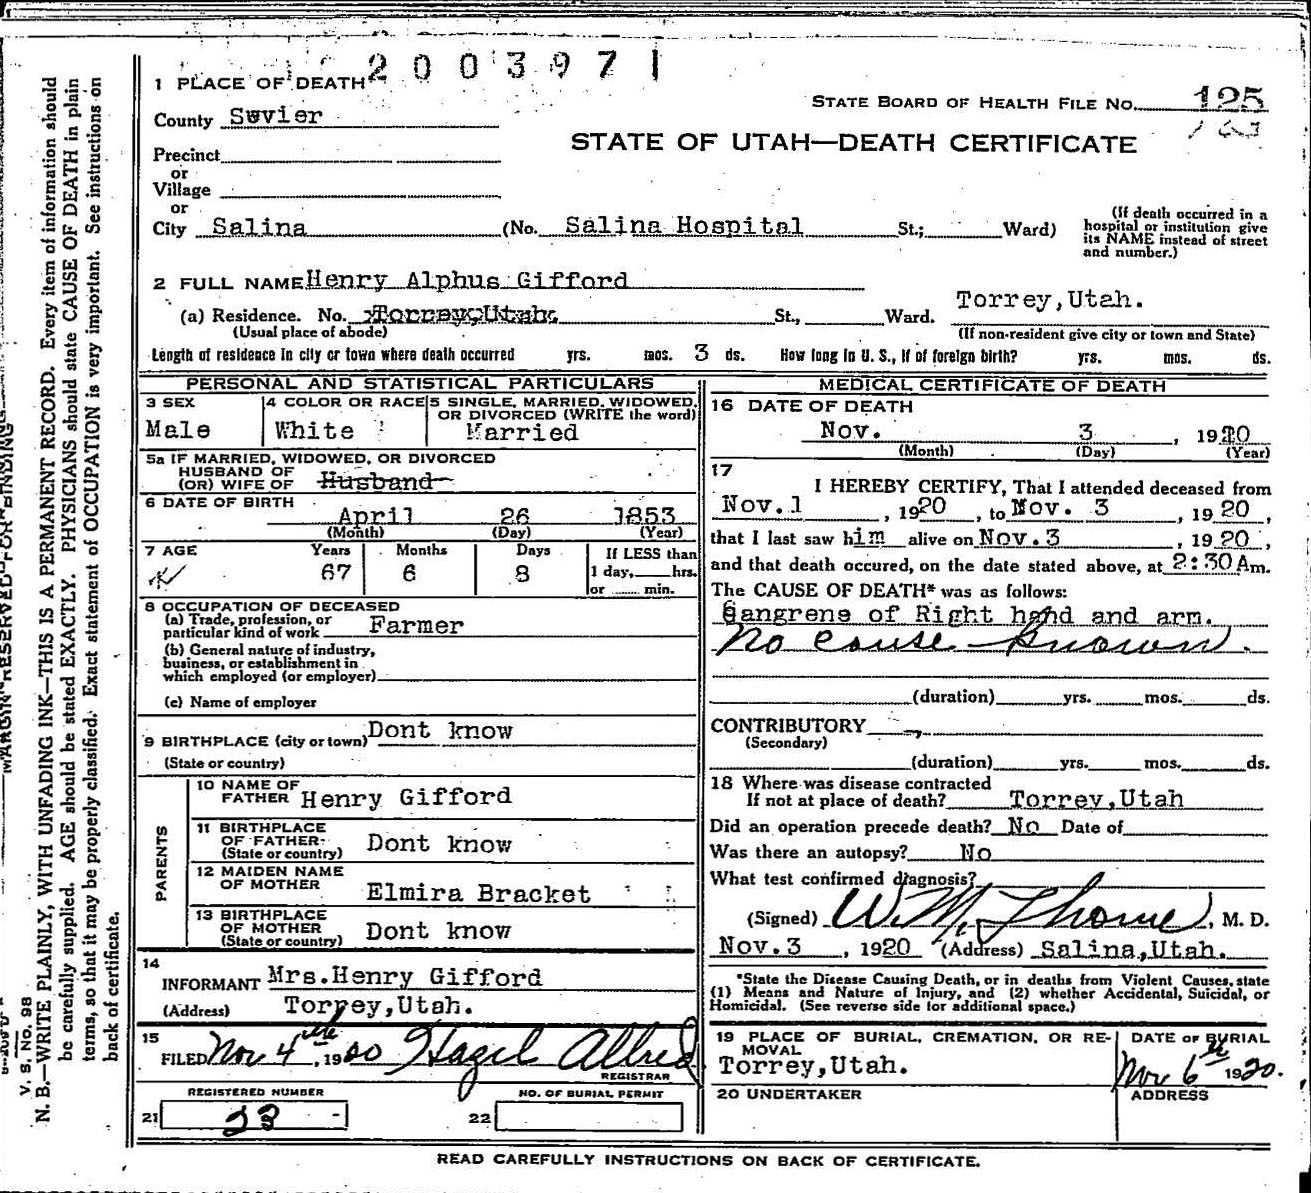 2003971
1 PLACE OF DEATH
STATE BOARD OF HEALTH FILE No. 125
County Sevier
STATE OF UTAH—DEATH CERTIFICATE
Precinct
or
Village
or
City Salina (No. Salina Hospital St.; Ward)
(If death occurred in a hospital or institution give its NAME instead of street and number.)
2 FULL NAME Henry Alphus Gifford
(a) Residence. No. Torrey, Utah. St., Ward. Torrey, Utah.
(Usual place of abode) (If non-resident give city or town and State)
Length of residence in city or town where death occurred yrs. mos. 3 ds. How long in U. S., if of foreign birth? yrs. mos. ds.
PERSONAL AND STATISTICAL PARTICULARS
3 SEX Male
4 COLOR OR RACE White
5 SINGLE, MARRIED, WIDOWED, OR DIVORCED (WRITE the word) Married
5a IF MARRIED, WIDOWED, OR DIVORCED
HUSBAND OF
(OR) WIFE OF Husband
6 DATE OF BIRTH
April 26 1853
(Month) (Day) (Year)
7 AGE Years Months Days If LESS than
67 6 8 1 day, hrs.
or min.
8 OCCUPATION OF DECEASED
(a) Trade, profession, or
particular kind of work Farmer
(b) General nature of industry,
business, or establishment in
which employed (or employer)
(c) Name of employer
9 BIRTHPLACE (city or town) Dont know
(State or country)
PARENTS
10 NAME OF
FATHER Henry Gifford
11 BIRTHPLACE
OF FATHER Dont know
(State or country)
12 MAIDEN NAME
OF MOTHER Elmira Bracket
13 BIRTHPLACE
OF MOTHER Dont know
(State or country)
14
INFORMANT Mrs. Henry Gifford
(Address) Torrey, Utah.
15
FILED Nov 4th, 1920 Hazel Allred
REGISTRAR
REGISTERED NUMBER
21 23
NO. OF BURIAL PERMIT
22
MEDICAL CERTIFICATE OF DEATH
16 DATE OF DEATH
Nov. 3, 1920
(Month) (Day) (Year)
17
I HEREBY CERTIFY, That I attended deceased from
Nov. 1, 1920, to Nov. 3, 1920,
that I last saw him alive on Nov. 3, 1920,
and that death occured, on the date stated above, at 2:30 Am.
The CAUSE OF DEATH* was as follows:
Gangrene of Right hand and arm.
No cause known.
(duration) yrs. mos. ds.
CONTRIBUTORY
(Secondary)
(duration) yrs. mos. ds.
18 Where was disease contracted
If not at place of death? Torrey, Utah
Did an operation precede death? No Date of
Was there an autopsy? No
What test confirmed diagnosis?
(Signed) W. M. Thome, M. D.
Nov. 3, 1920 (Address) Salina, Utah.
*State the Disease Causing Death, or in deaths from Violent Causes, state
(1) Means and Nature of Injury, and (2) whether Accidental, Suicidal, or
Homicidal. (See reverse side for additional space.)
19 PLACE OF BURIAL, CREMATION, OR RE-
MOVAL
Torrey, Utah.
DATE OF BURIAL
Nov 6th 1920.
20 UNDERTAKER
ADDRESS
READ CAREFULLY INSTRUCTIONS ON BACK OF CERTIFICATE.
MARGIN RESERVED FOR BINDING
V. S. No. 98
N. B.—WRITE PLAINLY, WITH UNFADING INK—THIS IS A PERMANENT RECORD. Every item of information should
be carefully supplied. AGE should be stated EXACTLY. PHYSICIANS should state CAUSE OF DEATH in plain
terms, so that it may be properly classified. Exact statement of OCCUPATION is very important. See instructions on
back of certificate.